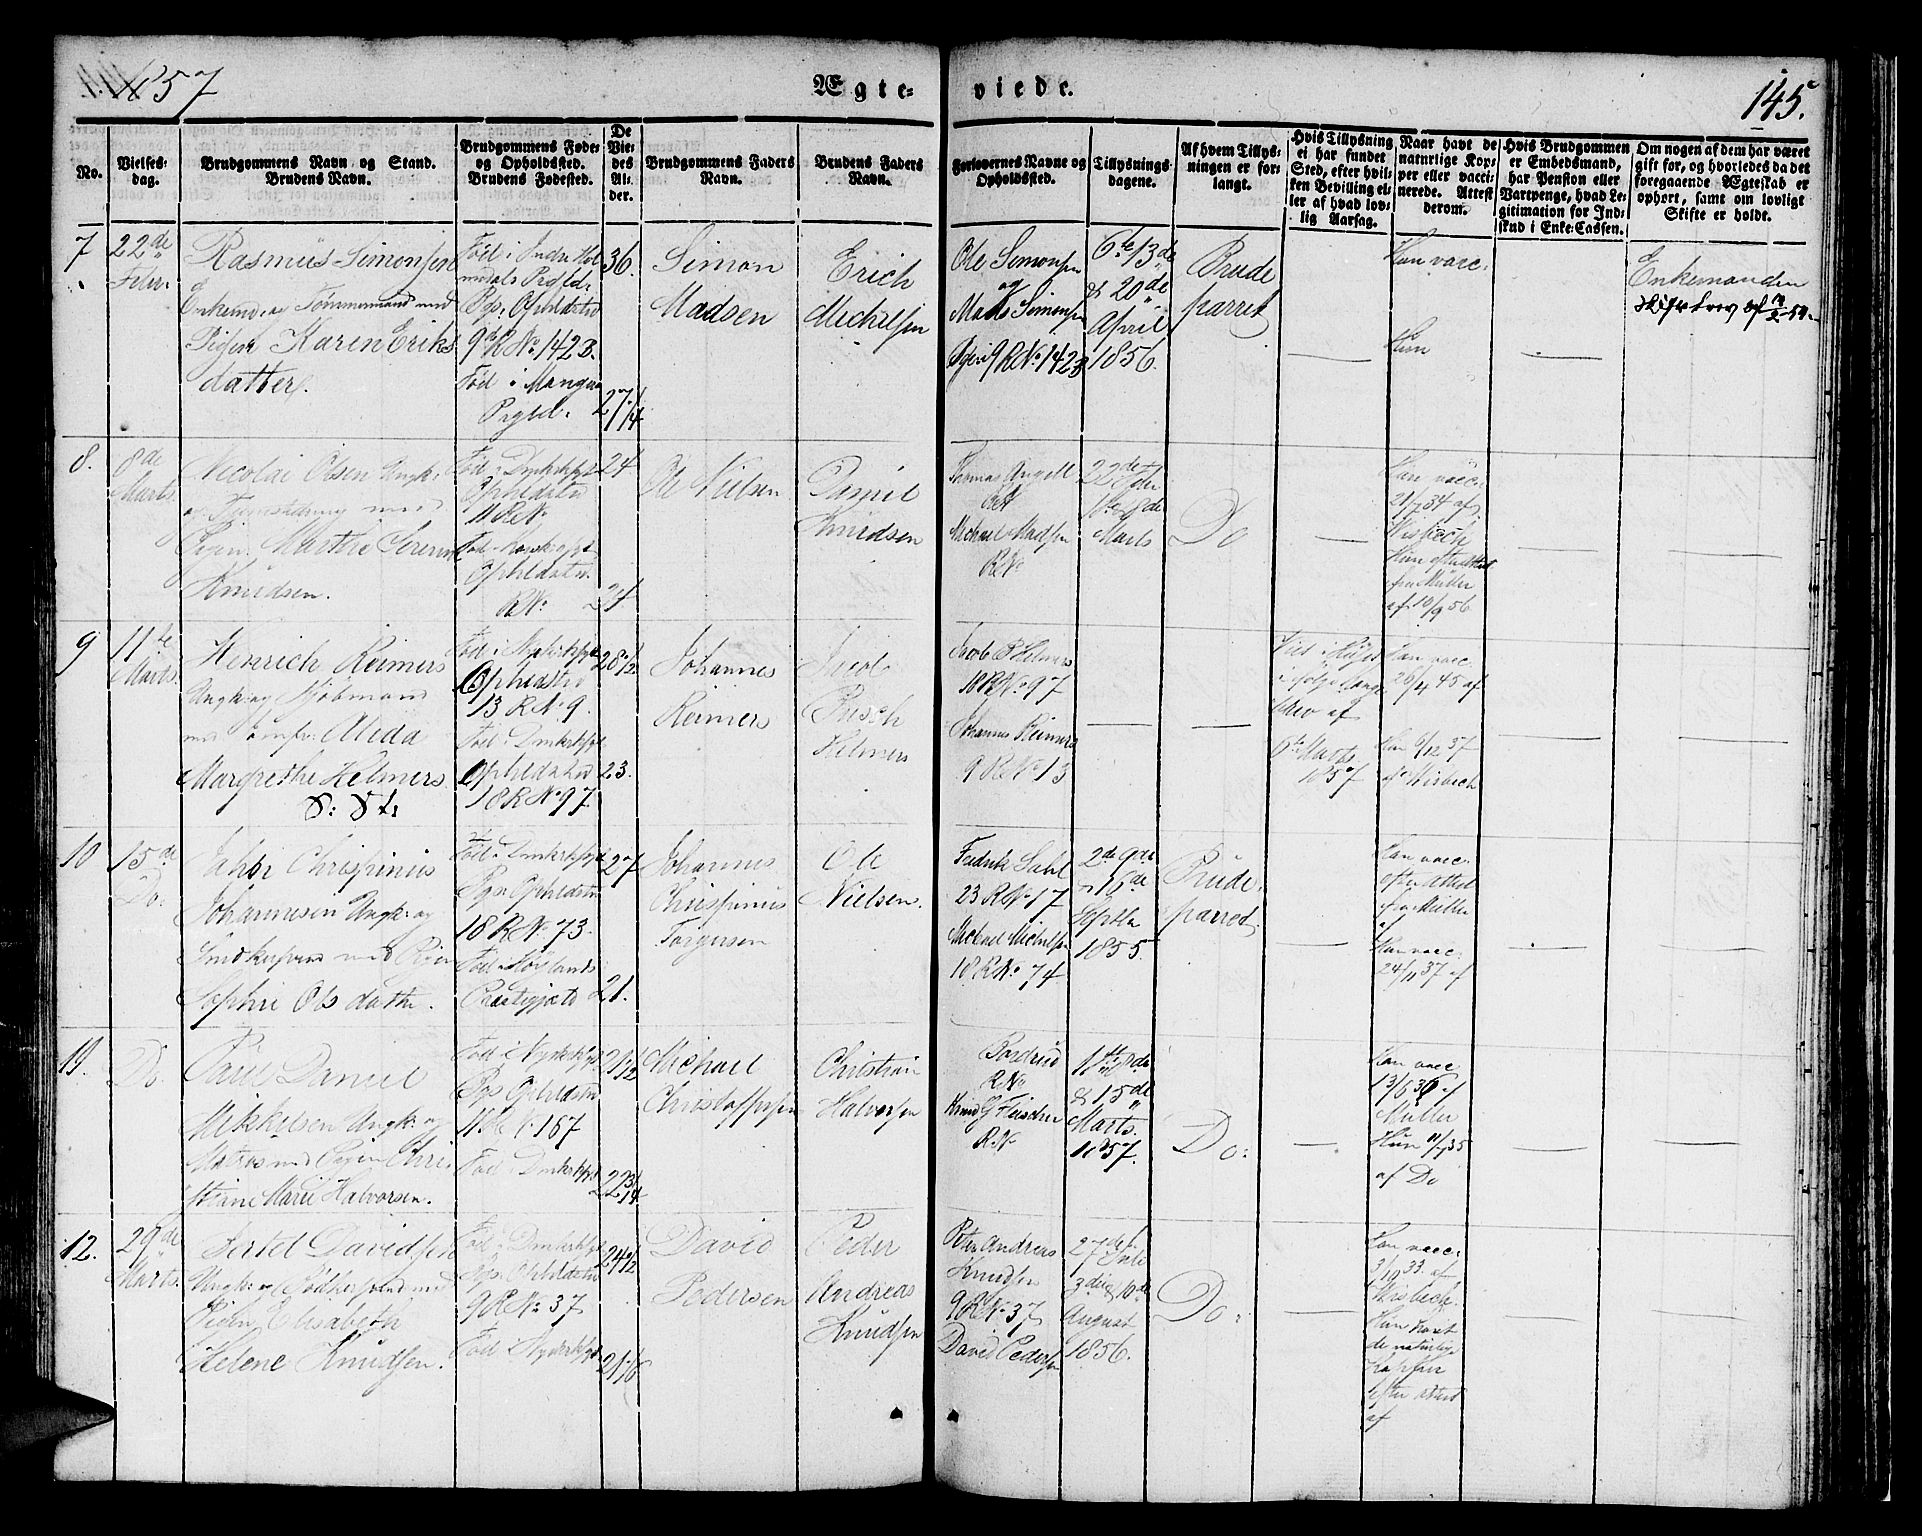 1857
Ægte-
viede.
145.
No.
Vielses-
dag.
Brudgommens Navn og Stand.
Brudens Navn.
Brudgommens Føde-
og Opholdssted.
Brudens Fødested.
De
Vie-
des
Al-
der.
Brudgommens Faders
Navn.
Brudens Faders
Navn.
Forlovernes Navne og
Opholdssted.
Tillysnings-
dagene.
Af hvem Tillys-
ningen er for-
langt.
Hvis Tillysning
ei har fundet
Sted, efter hvil-
ken Bevilling el-
ler af hvad lov-
lig Aarsag.
Naar havt de
naturlige Kop-
per eller vacci-
nerede. Attest
derom.
Hvis Brudgommen
er Embedsmand,
har Pension eller
Vartpenge, hvad Le-
gitimation for Ind-
skud i Enke-Cassen.
Om nogen af dem har været
gift før, og hvorledes da det
foregaaende Ægteskab er
ophørt, samt om lovligt
Skifte er holdt.
7
22de
Febr.
Rasmus Simonsen
Enkemd. og Tømmermand med
Pigen Karen Eriks
datter.
Født i Indre Hol
medals Prgld.
Pgs. Opholdsted
9 R No. 142 B.
Fød i Manger
Prgld.
36.
27 1/4
Simon
Madsen
Erich
Michelsen
Ole Simonsen
og
Mads Simonsen
9 R No. 142 B
6te 13de
& 20de
April
1856.
Brude
parret
Han vacc.
Hun
Enkemanden
8.
8de
Marts.
Nicolai Olsen Ungk.
med
Pigen Marthe Serene
Knudsen.
Fød i Dmkirkspt
Opholdsted
11 R No.
Opholdsted.
R No.
24
Ole Nielsen
Daniel
Knudsen
Thomas Angell
Michael Madsen
R No
22de Febr
1ste & 8de
Marts
Do
Han vacc.
21/7 34 af
Wisbech
Hun efter Attest
fra Müller
af 10/9 56
9
11te
Marts.
Henrich Reimers
Ungk. og Kjøbmand
med Jomfr. Alida
Margrethe Helmers
Fød i Nykirkspt
Opholdsted
13 R No 9.
Fød i Dmkirkspt
Opholdsted
18 R No 97
28 1/12
23.
Johannes
Reimers
Jacob
Busch
Helmers
Jacob B Helmers
18 R No 97
Johannes Reimers
9 R No 13
Viet i Huset
i følge Konge
brev af
6te Marts
1857
Han vacc.
26/4 45 af
Hun 6/12 37
af Wisbech
10
15de
Do.
Chrispinus
Johannesen Ungk. og
Smedkersvend med Pigen
Sophie Olsdatter.
Fød i Dmkirkspt
Pgs. Opholdsted
18 R No. 73.
Fød i Høylands
Præstegjeld
27
21.
Johannes
Chrispinus
Torgersen
Ole
Nielsen.
Fredrik Dahl
23 R No 17
Michael Michelsen
18 R No 74
2de 9de
& 16de
Septbr
1855.
Brude.
parret.
Han vacc.
efter Attest
fra Müller
af
Hun vacc.
24/11 37 af
11.
Do.
Paul Daniel
Mikkelsen Ungk. og
Matros med Pigen Chri
stiane Marie Halvorsen.
Fød i Nykirkspt
Pgs Opholdsted
11 R No. 167
Fød i Dmkirkspt
22 3/4
Michael
Christophersen
Christian
Halvorsen
R No
Knud G Fleischer
R No
1ste 8de
& 15de
Marts.
1857.
Do.
Han vacc.
13/6 36 af
Müller
Hun 11/7 35
af Do
12.
29de
Marts.
Davidsen
Ungk. og Bødkersvend med
Pigen Elisabeth
Helene Knudsen.
Fød i Dmkirkspt
Pgs. Opholdsted
9 R No. 37
Fød i Nykirkspt
David
Pedersen
Peder
Andreas
Knudsen
Peter Andreas
Knudsen
9 R No 37
David Pedersen
27de Juli
3die & 10de
August
1856.
Do.
Han vacc.
3/10 33. af
Wisbech.
Hun havt
de naturlige
Kopper
efter Attest
af